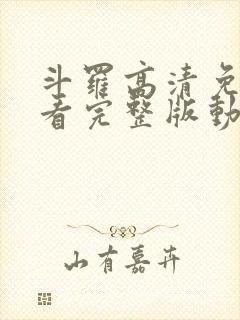 斗羅高清免
看完整版動
山有嘉卉